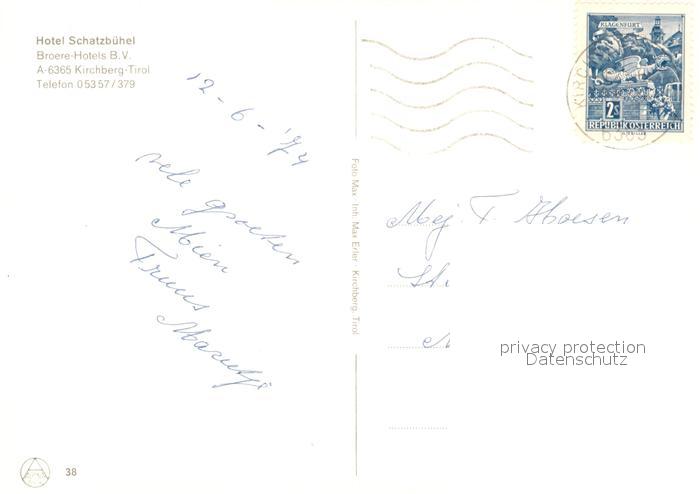 Hotel Schatzbühel
Broere-Hotels B.V.
A-6365 Kirchberg-Tirol
Telefon 05357/379
12-6-'74
vele groeten
Mien
Truus
Foto Max, Inh. Max Erler · Kirchberg, Tirol
KLAGENFURT
2S
REPUBLIK ÖSTERREICH
KIRCH
6365
Mej. T.
St.
privacy protection
Datenschutz
38